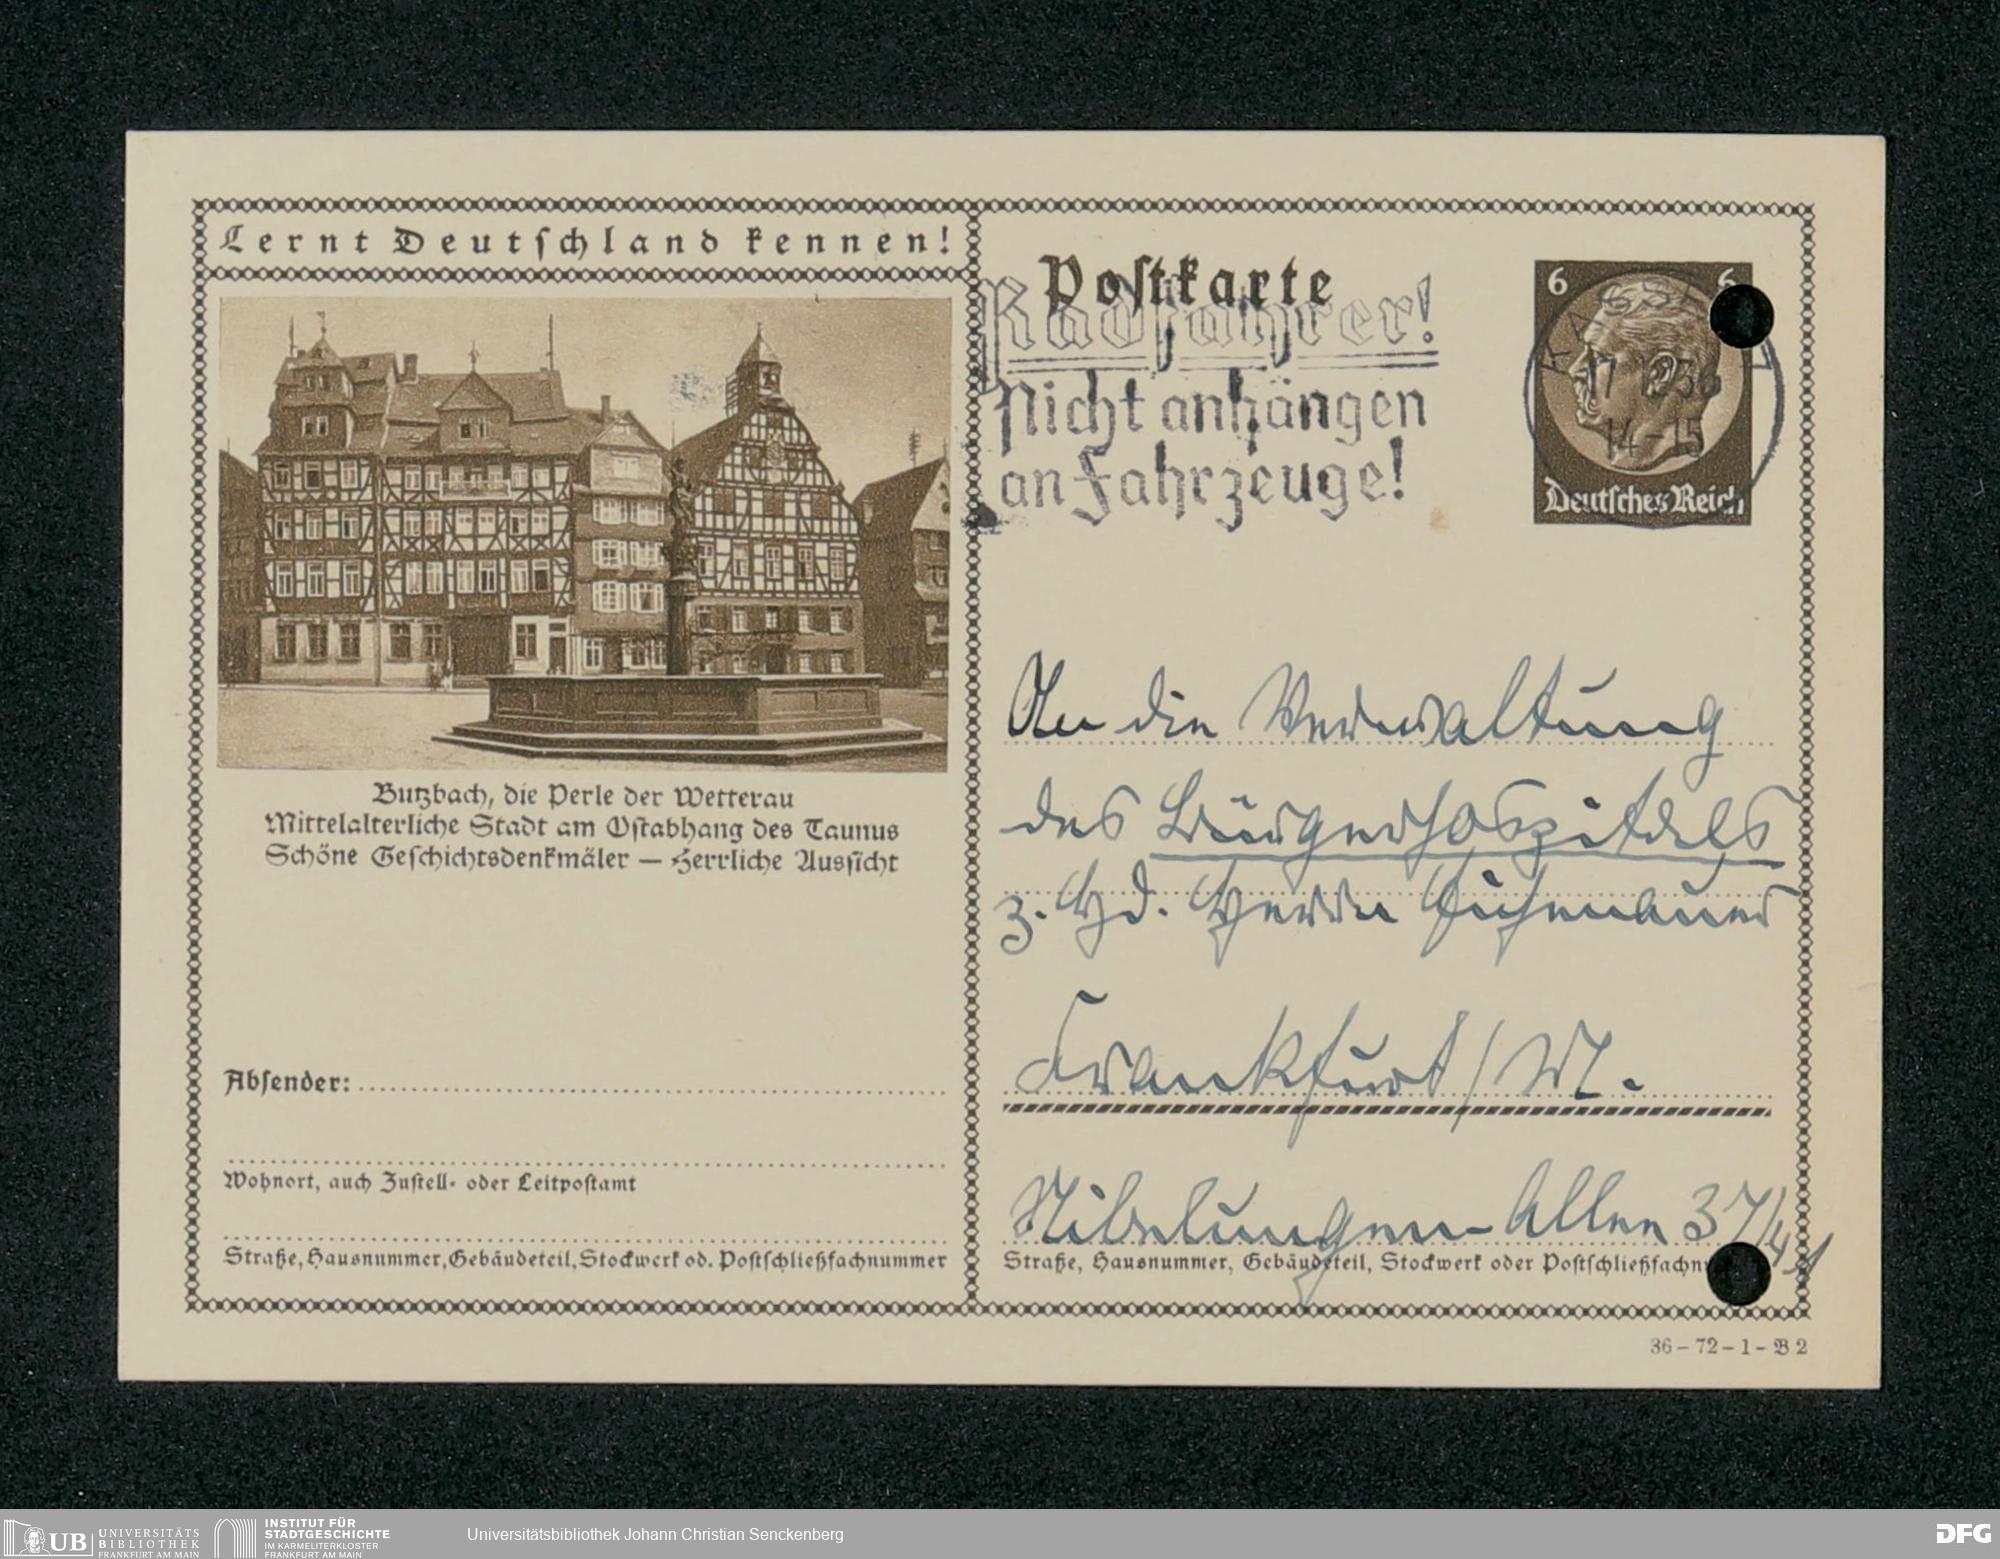 Lernt Deutschland kennen!
Butzbach, die Perle der Wetterau
Mittelalterliche Stadt am Ostabhang des Taunus
Schöne Geschichtsdenkmäler — Herrliche Aussicht
Absender:
Wohnort, auch Zustell- oder Leitpostamt
Straße, Hausnummer, Gebäudeteil, Stockwerk od. Postschließfachnummer
Postkarte
Radfahrer!
Nicht anhängen
an Fahrzeuge!
6 6
KASSEL
14-15
Deutsches Reich
An die Verwaltung
des Bürgerhospitals
z. Hd. Herrn
Frankfurt/M.
Nibelungen-Allee 37/41
Straße, Hausnummer, Gebäudeteil, Stockwerk oder Postschließfachnu
36-72-1-B 2
UB UNIVERSITÄTS
BIBLIOTHEK
FRANKFURT AM MAIN
INSTITUT FÜR
STADTGESCHICHTE
IM KARMELITERKLOSTER
FRANKFURT AM MAIN
Universitätsbibliothek Johann Christian Senckenberg
DFG